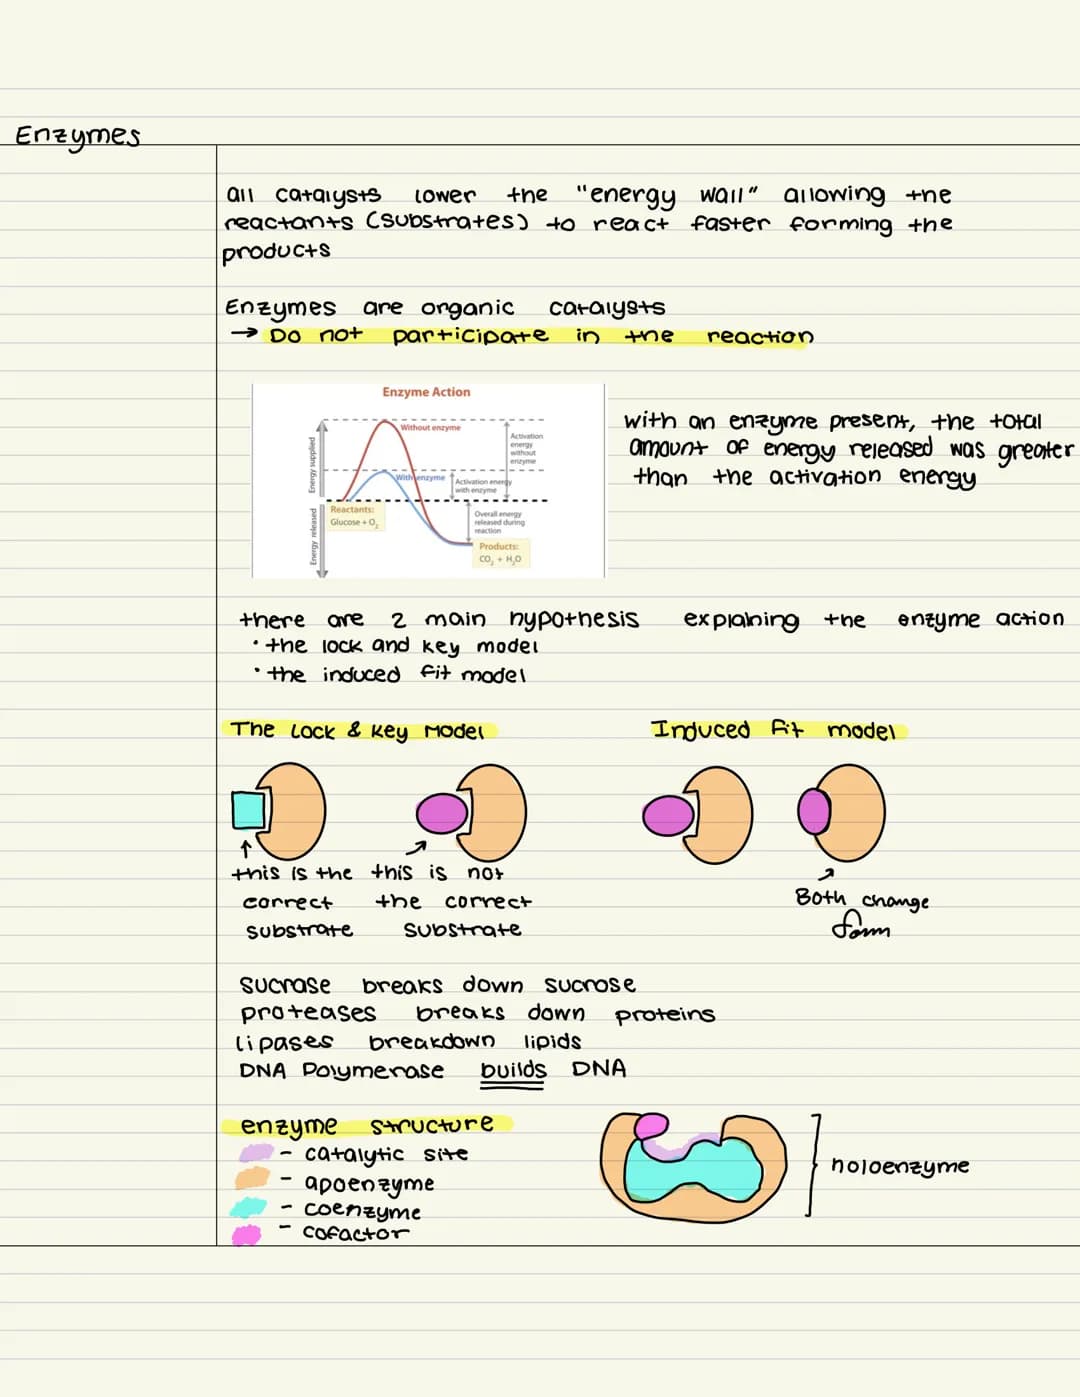 Enzymes
all catalysts lower the "energy wall" allowing the
reactants (substrates) to react faster forming the
products
Enzymes are organic catalysts
→ Do not participate in the reaction
Enzyme Action
Without enzyme
With enzyme
Energy supplied
Energy released
Activation
energy
without
enzyme
Activation energy
with enzyme
Reactants:
Glucose + O₂
Overall energy
released during
reaction
Products:
CO₂ + H₂O
with an enzyme present, the total
amount of energy released was greater
than the activation energy
there are 2 main hypothesis explaining the enzyme action
• the lock and key model
• the induced fit model
The Lock & Key Model
Induced fit model
↑
this is the
correct
substrate
this is not
the correct
substrate
Both change
form
sucrase breaks down sucrose
proteases breaks down proteins
lipases breakdown lipids
DNA Polymerase builds DNA
enzyme structure
- catalytic site
- apoenzyme
- coenzyme
- cofactor
holoenzyme